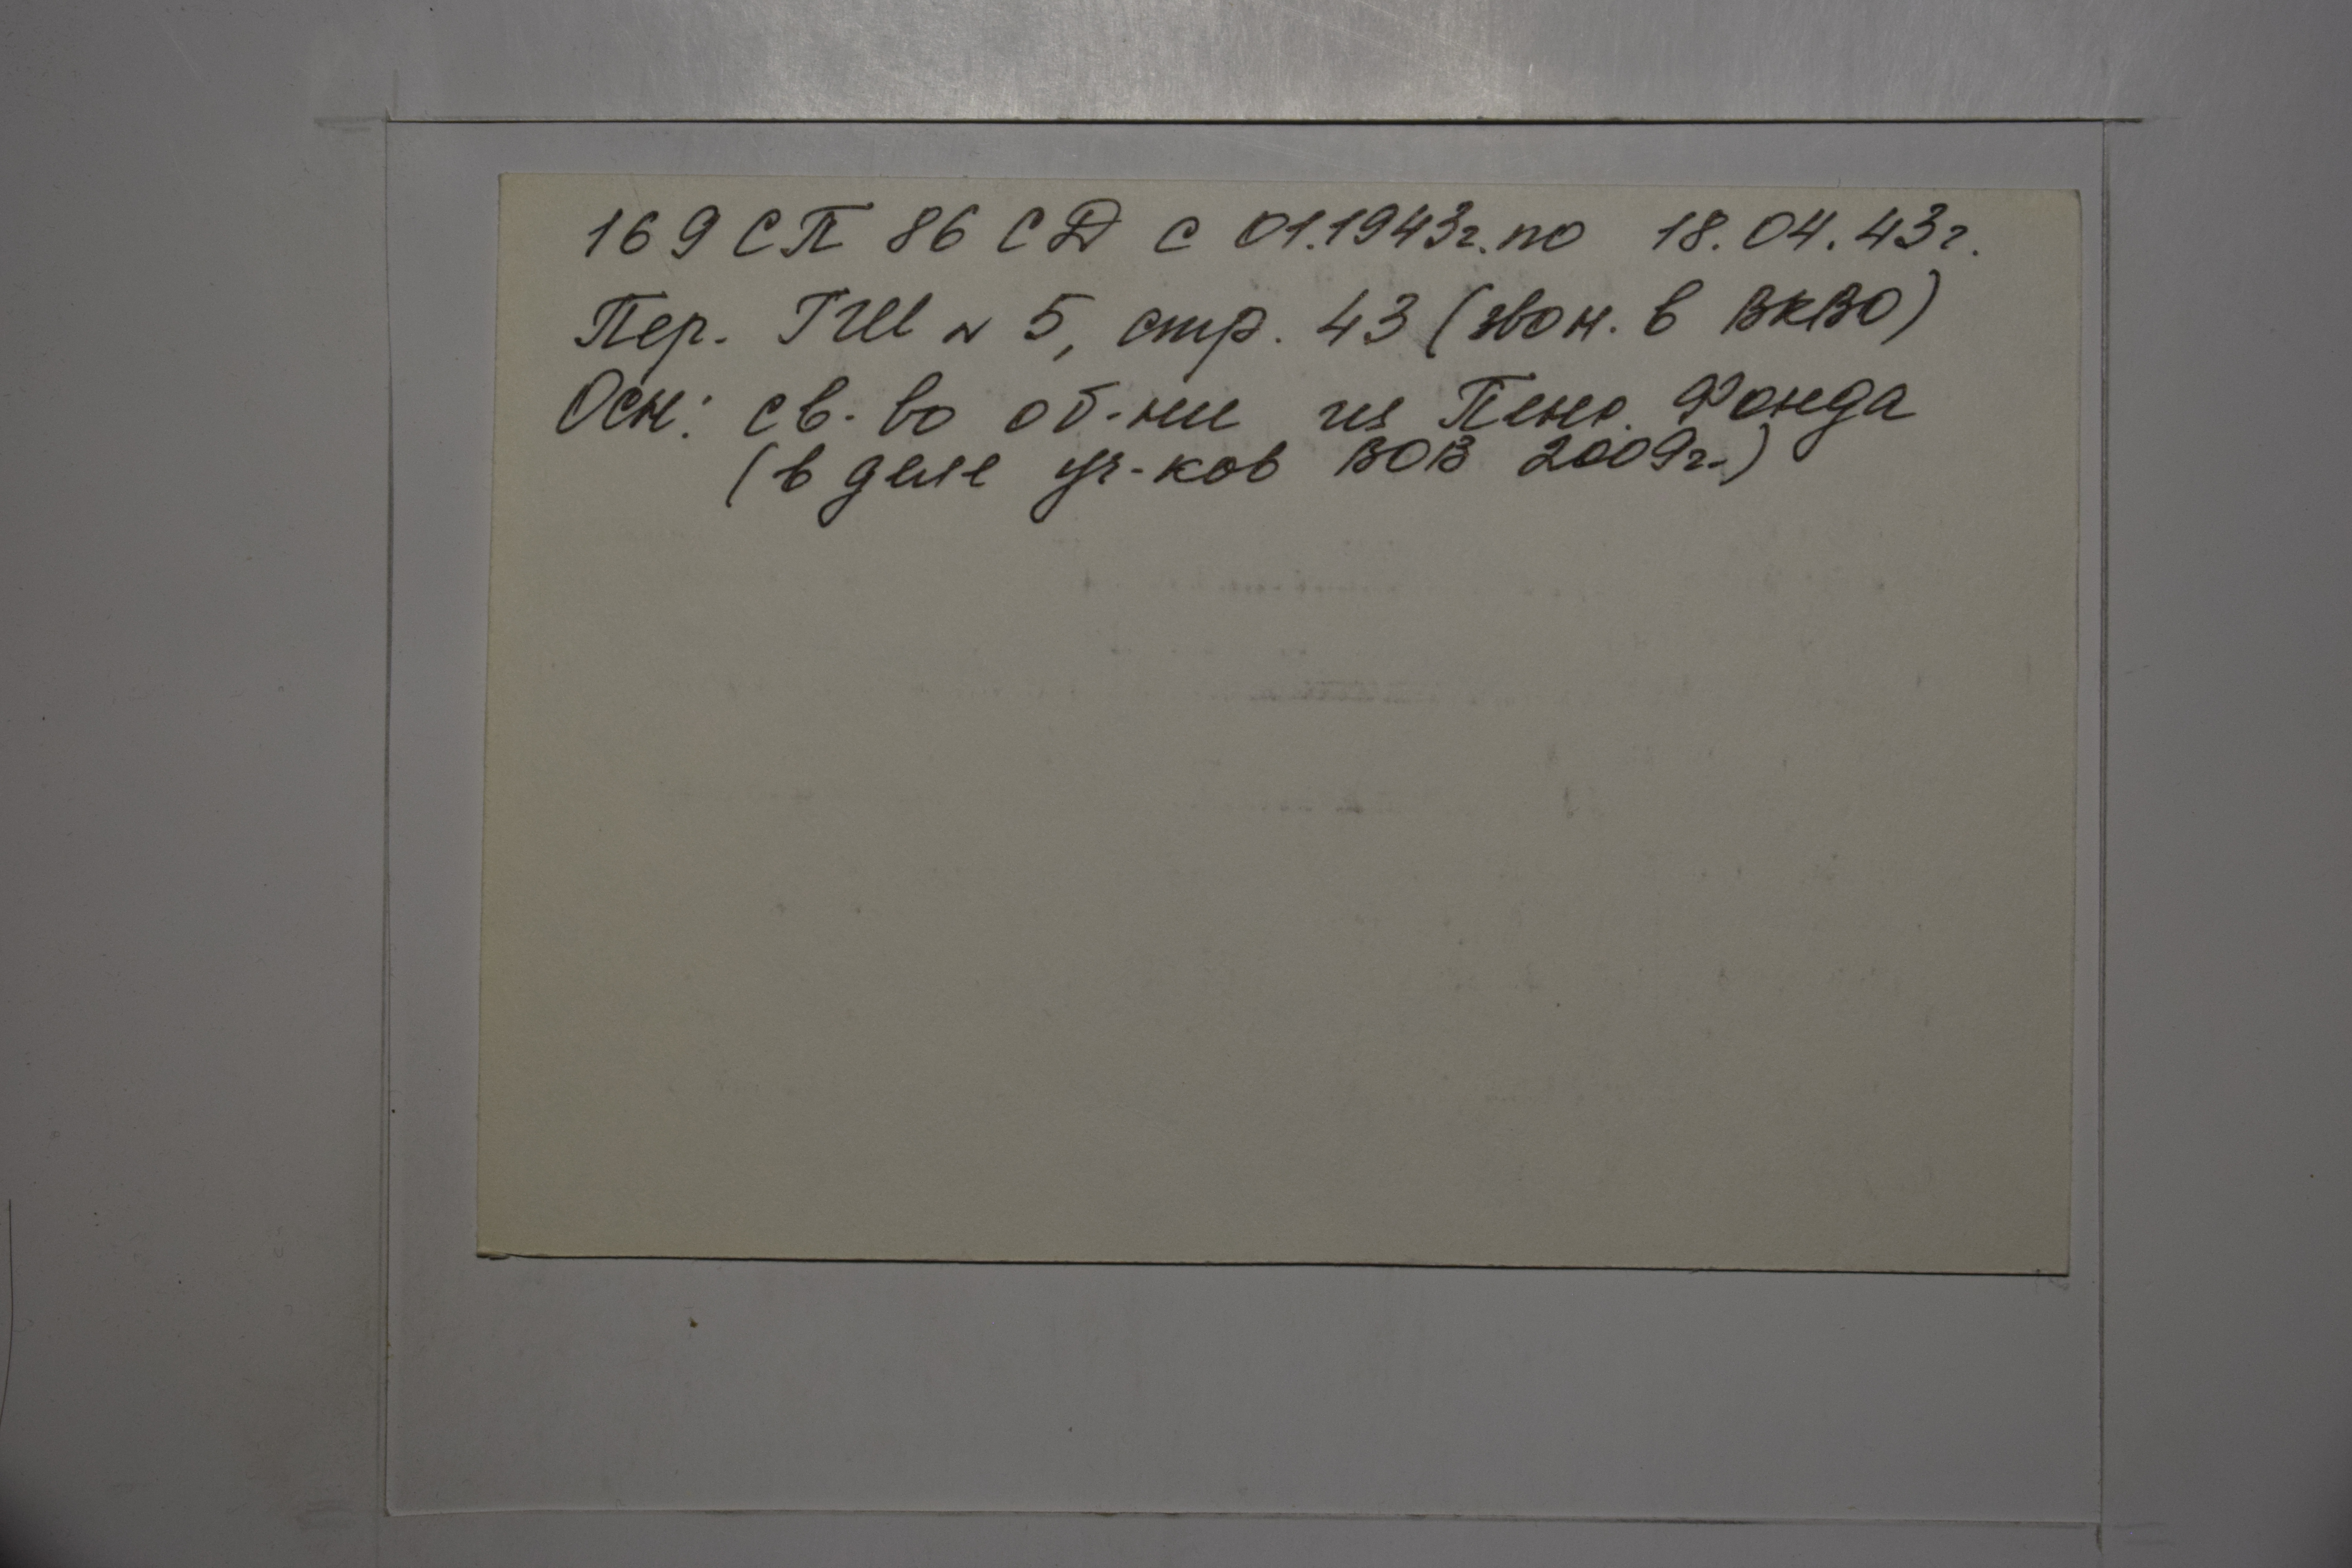 169 СП 86 СД с 01.1943г. по 18.04.43г.
Пер. ГШ № 5, стр. 43 (звон. в ВКВО)
Осн: св-во об-нии из Пенс. Фонда
(в деле уч-ков ВОВ 2009г.)